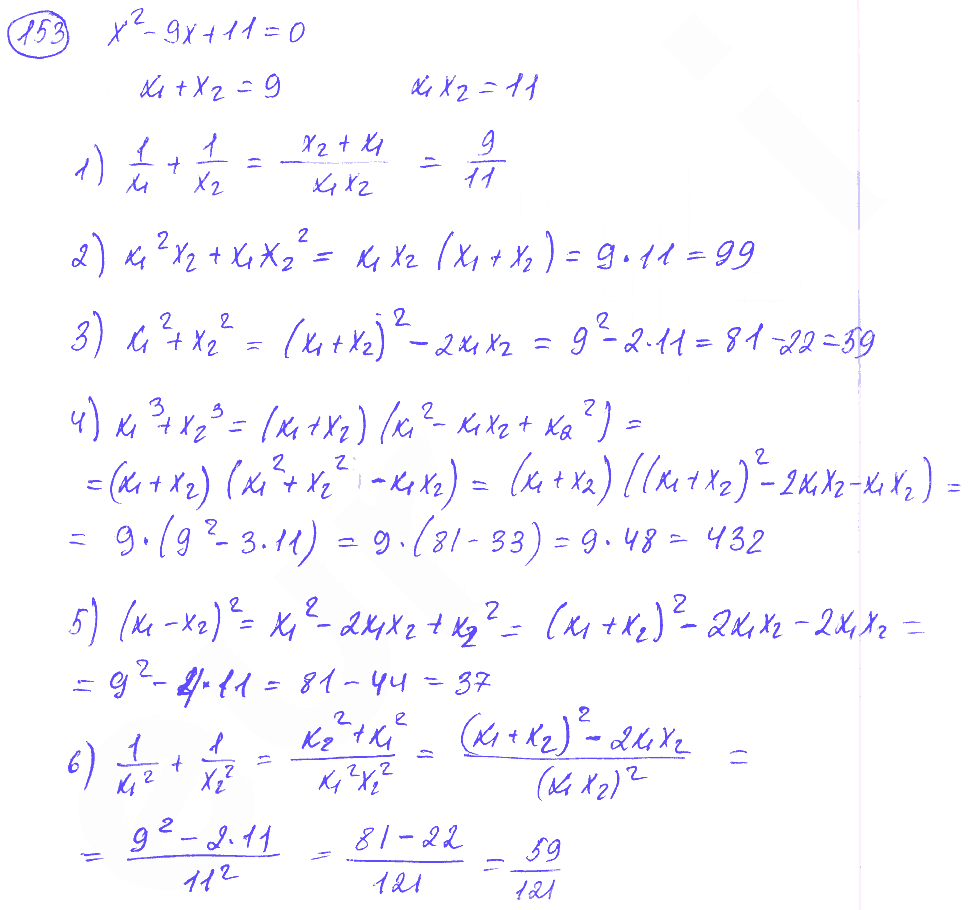 153 x² - 9x + 11 = 0
x₁ + x₂ = 9 x₁x₂ = 11
1) 1/x₁ + 1/x₂ = (x₂ + x₁)/(x₁x₂) = 9/11
2) x₁²x₂ + x₁x₂² = x₁x₂(x₁ + x₂) = 9·11 = 99
3) x₁² + x₂² = (x₁ + x₂)² - 2x₁x₂ = 9² - 2·11 = 81 - 22 = 59
4) x₁³ + x₂³ = (x₁ + x₂)(x₁² - x₁x₂ + x₂²) =
= (x₁ + x₂)(x₁² + x₂² - x₁x₂) = (x₁ + x₂)((x₁ + x₂)² - 2x₁x₂ - x₁x₂) =
= 9·(9² - 3·11) = 9·(81 - 33) = 9·48 = 432
5) (x₁ - x₂)² = x₁² - 2x₁x₂ + x₂² = (x₁ + x₂)² - 2x₁x₂ - 2x₁x₂ =
= 9² - 4·11 = 81 - 44 = 37
6) 1/x₁² + 1/x₂² = (x₂² + x₁²)/(x₁²x₂²) = ((x₁ + x₂)² - 2x₁x₂)/(x₁x₂)² =
= (9² - 2·11)/11² = (81 - 22)/121 = 59/121